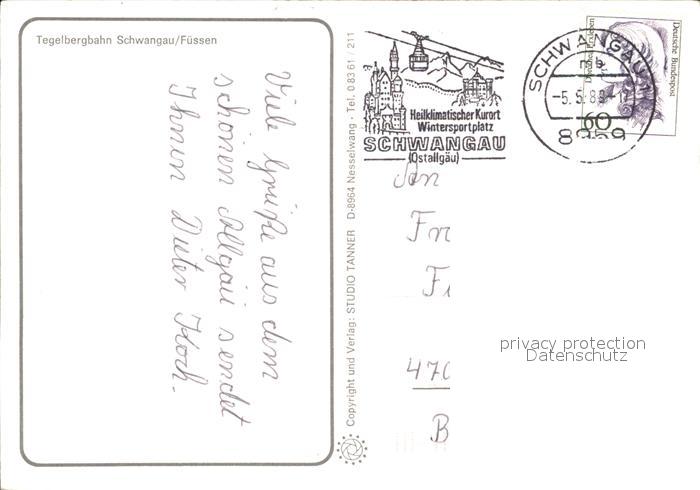 Tegelbergbahn Schwangau/Füssen
Viele Grüße aus dem
schönen Allgäu sendet
Ihnen Dieter Koch.
Copyright und Verlag: STUDIO TANNER D-8964 Nesselwang · Tel. 0 83 61 / 211
Heilklimatischer Kurort
Wintersportplatz
SCHWANGAU
(Ostallgäu)
SCHWANGAU
mb
-5.5.89-
8959
Deutsche Bundespost
60
An
Fr
470
B
privacy protection
Datenschutz